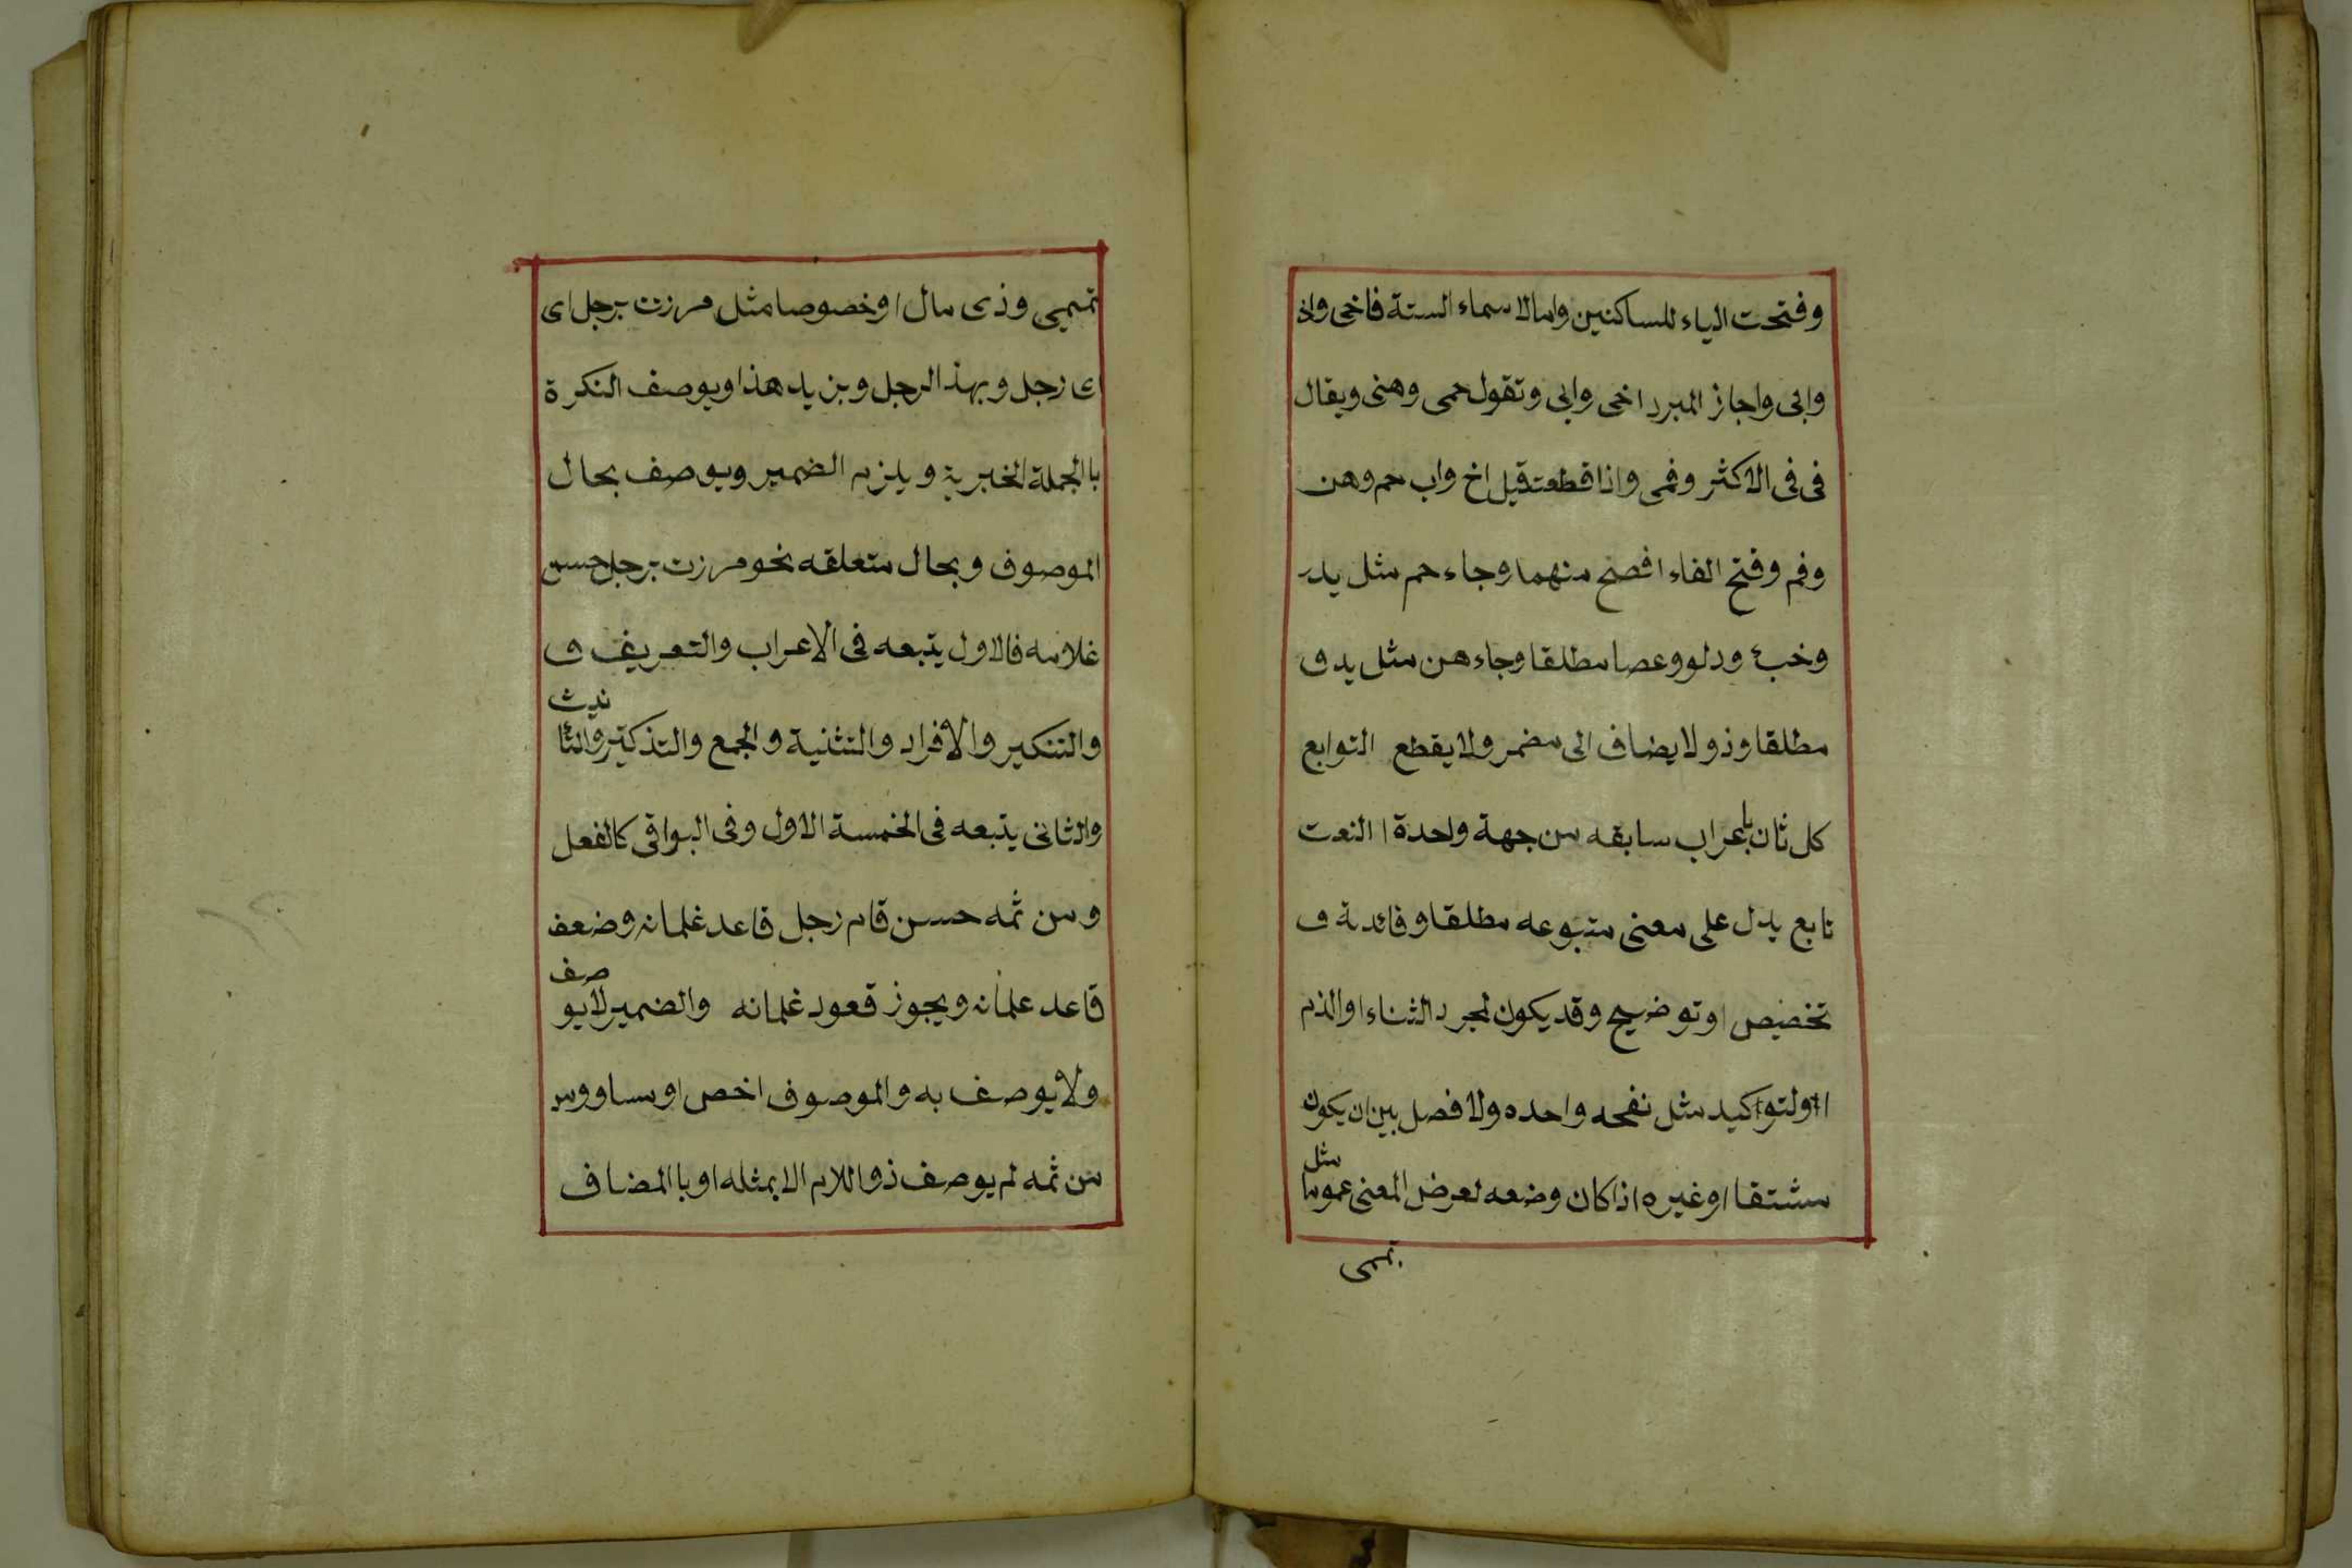 وفتحت الياء للساكنين واما الاسماء الستة فاخى واذ
وابى واجاز المبرد اخى وابى وتقول حمى وهنى ويقال
فى فى الاكثر وفمى واذا قطعت قيل اخ واب حم وهن
وفم وفتح الفاء افصح منهما وجاء حم مثل يد
وخبء ودلو وعصا مطلقا وجاء هن مثل يد و
مطلقا وذو لا يضاف الى مضمر ولا يقطع التوابع
كل ثان باعراب سابقه من جهة واحدة ا النعت
تابع يدل على معنى متبوعه مطلقا وفائدة و
تخصيص او توضيح وقد يكون لمجرد الثناء او الذم
او لتواكيد مثل نفحه واحده ولا فصل بين ان يكون
مثل
مشتقا او غيره اذا كان وضعه لعرض المعنى عموما
تممى
تميمى وذى مال او خصوصا مثل مرزت برجل اى
ى رجل وبهذ الرجل وبزيد هذا ويوصف النكرة
باالجملة الخبرية ويلزم الضمير ويوصف بحال
الموصوف وبحال متعلقه نحو مرزت برجل حسن
غلامه فالاول يتبعه فى الاعراب والتعريف و
نيث
والتنكير والافراد والتثنية والجمع والتذكير والتأ
والثانى يتبعه فى الخمسة الاول وفى البواقى كالفعل
ومن ثمه حسن قام رجل قاعد غلمانه وضعف
صف
قاعد علمانه ويجوز قعود غلمانه والضمير لايو
ولا يوصف به والموصوف اخص او مساو ومر
من ثمه لم يوصف ذو اللام الا بمثله او باالمضاف